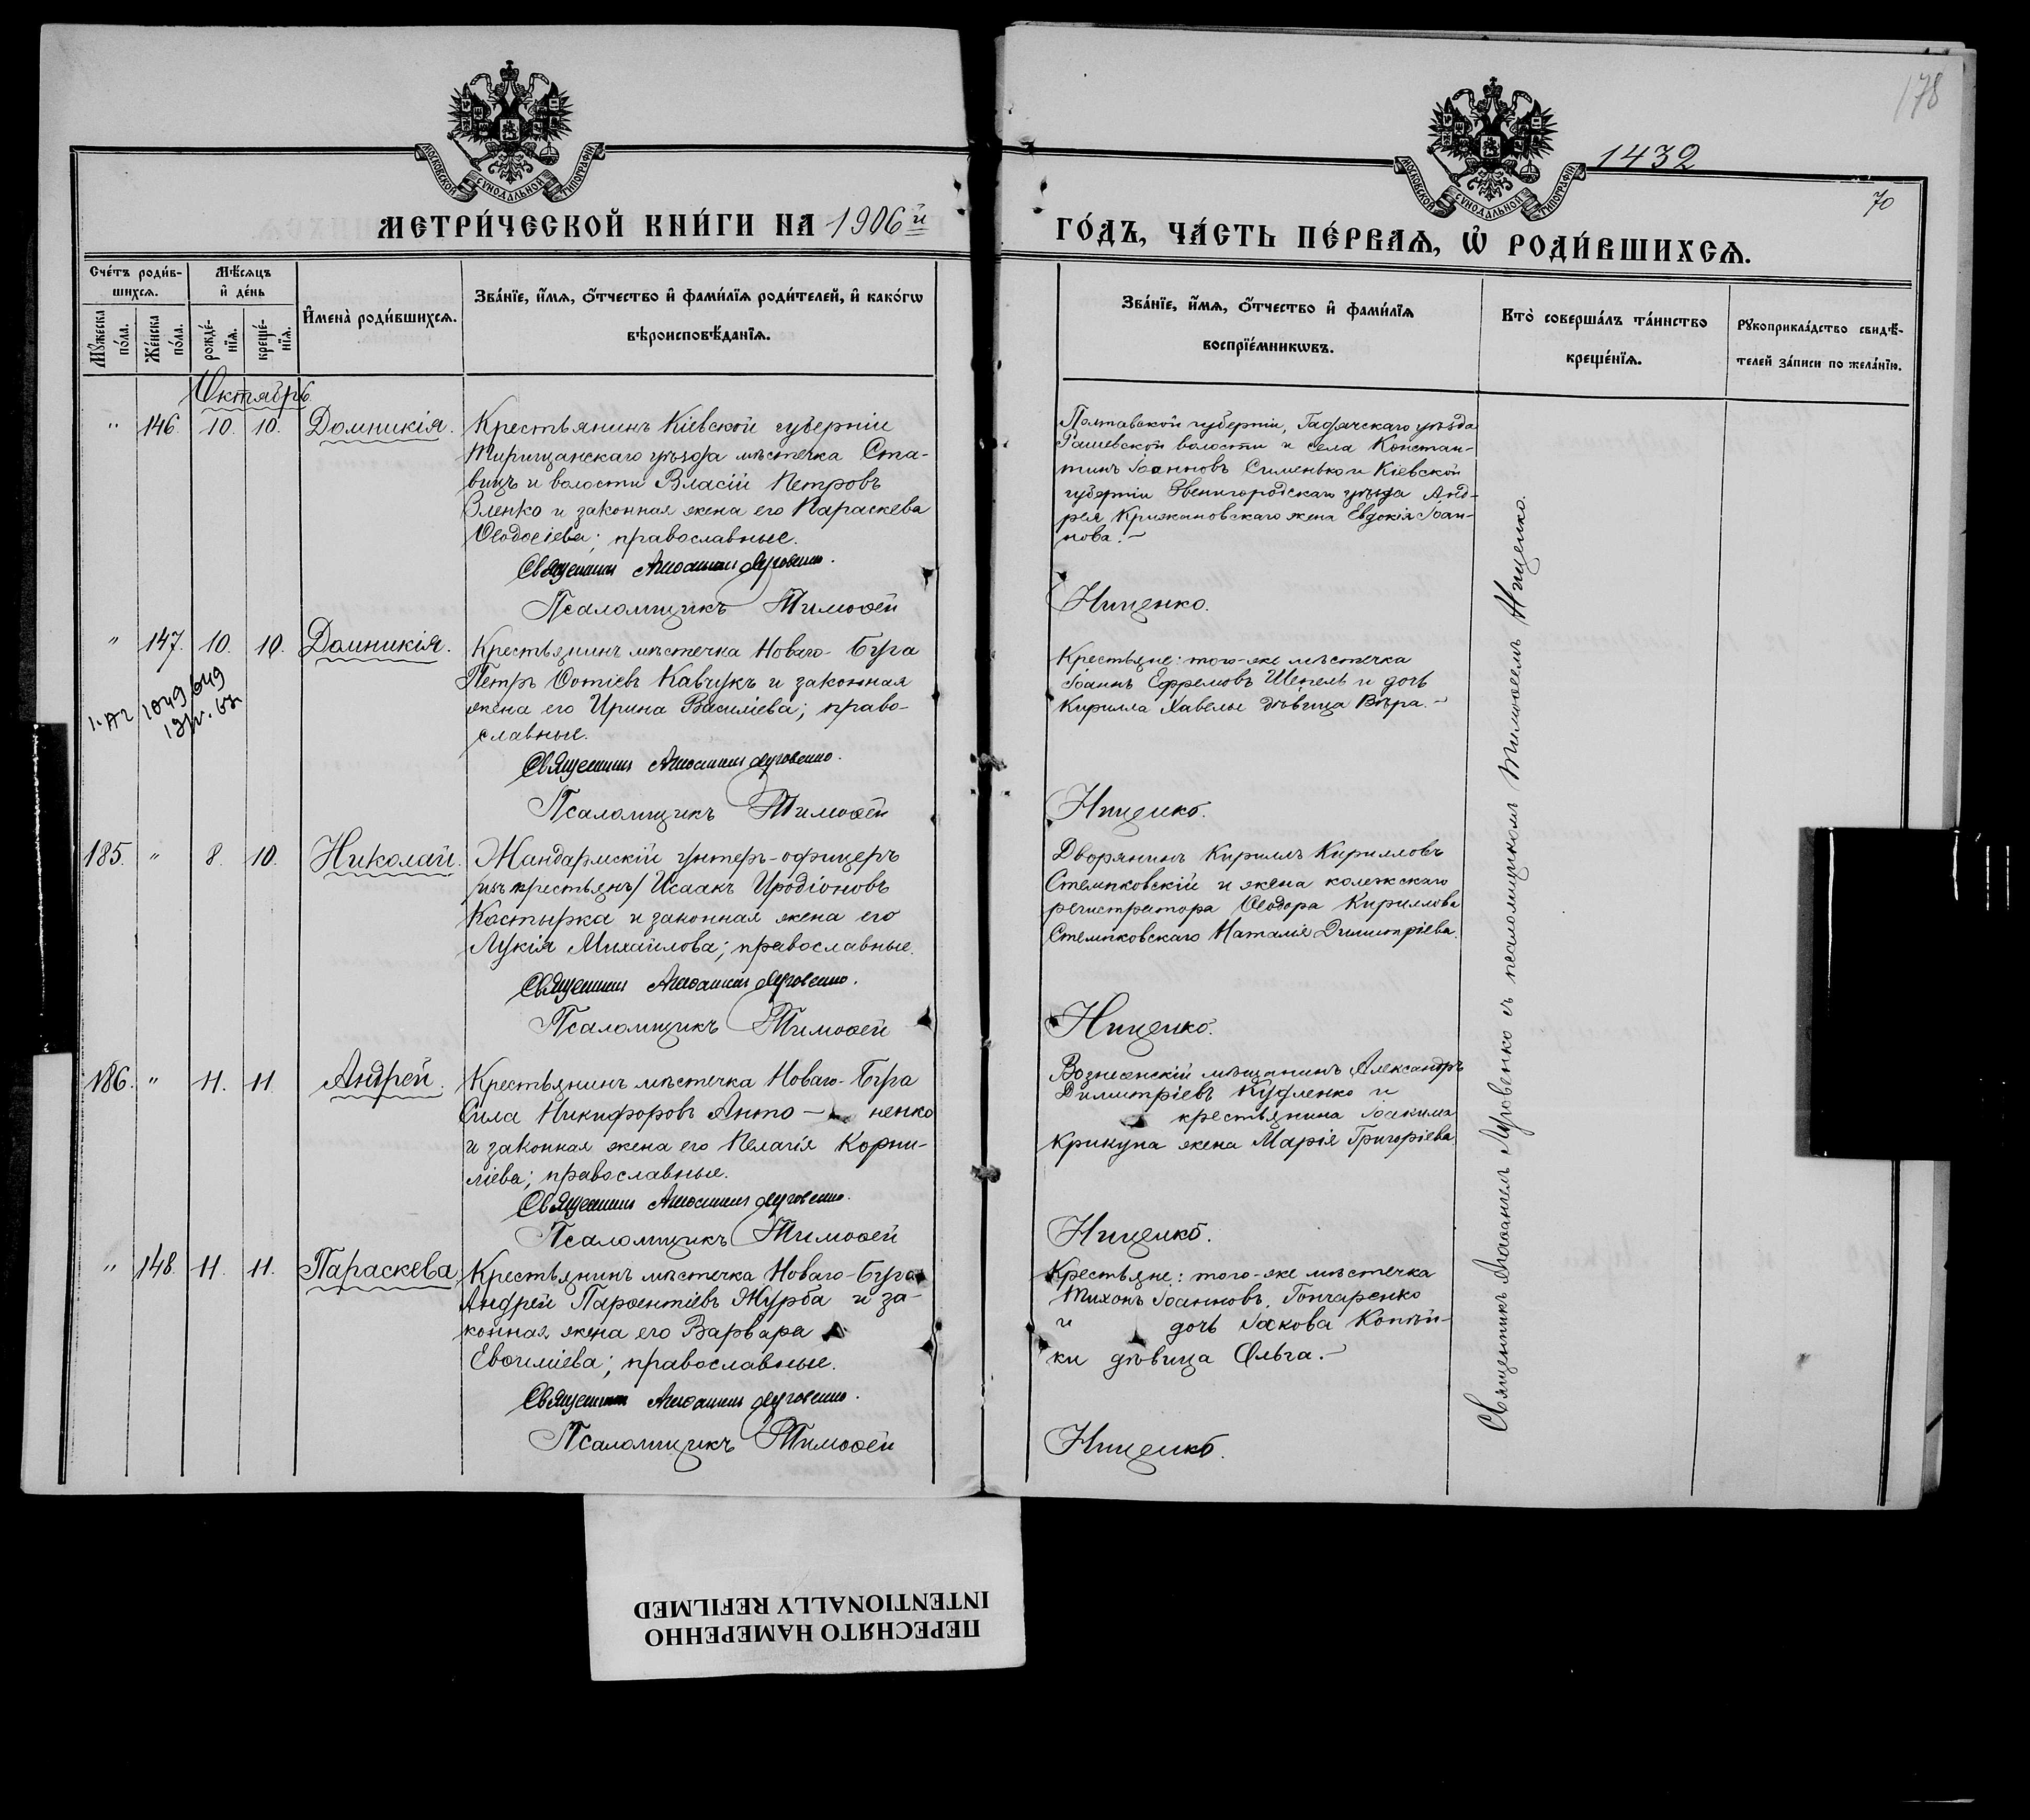 178
1432
70
МОСКОВСКОЙ СУНОДАЛЬНОЙ ТИПОГРАФІИ
МОСКОВСКОЙ СУНОДАЛЬНОЙ ТИПОГРАФІИ
МЕТРИ́ЧЕСКОЙ КНИ́ГИ НА 1906й
ГО́ДЪ, ЧА́СТЬ ПЕ́РВАѦ, Ѡ҆ РОДИ́ВШИХСѦ.
Сче́тъ роди́в-
шихсѧ.
Мѣ́сѧцъ
и҆ де́нь
Мꙋ́жеска
по́ла.
Же́нска
по́ла.
рожде́-
нїѧ.
креще́-
нїѧ.
И҆мена̀ роди́вшихсѧ.
Зва́нїе, и҆́мѧ, ѻ҆́тчество и҆ фами́лїѧ роди́телей, и҆ како́гѡ
вѣроисповѣ́данїѧ.
Зва́нїе, и҆́мѧ, ѻ҆́тчество и҆ фами́лїѧ
воспрїе́мникѡвъ.
Кто̀ соверша́лъ та́инство
креще́нїѧ.
Рꙋкоприкла́дство свидѣ́-
телей за́писи по жела́нїю.
Октябрь
" 146. 10. 10. Домникія.
Крестьянинъ Кіевской губерніи
Таращанскаго уѣзда мѣстечка Ста-
вищъ и волости Власій Петровъ
Зленко и законная жена его Параскева
Ѳеодосіева; православные.
Священникъ Аѳанасій Луговенко.
Псаломщикъ Тимоѳей
Полтавской губерніи, Гадячскаго уѣзда
Рашевской волости и села Констан-
тинъ Іоанновъ Сименько и Кіевской
губерніи Звенигородскаго уѣзда Анд-
рея Крижановскаго жена Евдокія Іоан-
нова.-
Нищенко.
" 147. 10. 10. Домникія.
Крестьянинъ мѣстечка Новаго-Буга
Петръ Фотіевъ Кавчукъ и законная
жена его Ирина Василіева; право-
славные.
Священникъ Аѳанасій Луговенко.
Псаломщикъ Тимоѳей
Крестьяне: того-же мѣстечка
Іоаннъ Ефремовъ Шепель и дочь
Кирилла Хавелы дѣвица Вѣра.-
Нищенко.
185. " 8. 10. Николай.
Жандармскій унтеръ-офицеръ
/изъ крестьянъ/ Исаакъ Иродіоновъ
Костырка и законная жена его
Лукія Михайлова; православные.
Священникъ Аѳанасій Луговенко.
Псаломщикъ Тимоѳей
Дворянинъ Кириллъ Кирилловъ
Стемпковскій и жена колежскаго
регистратора Ѳеодора Кириллова
Стемпковскаго Наталія Димитріева.
Нищенко.
186. " 11. 11. Андрей.
Крестьянинъ мѣстечка Новаго-Буга
Сила Никифоровъ Анто- ненко
и законная жена его Пелагія Корни-
ліева; православные.
Священникъ Аѳанасій Луговенко.
Псаломщикъ Тимоѳей
Вознесенскій мѣщанинъ Александръ
Димитріевъ Куделенко и
крестьянина Іоакима
Крикуна жена Марія Григоріева.
Нищенко.
" 148. 11. 11. Параскева
Крестьянинъ мѣстечка Новаго-Буга
Андрей Парѳентіевъ Журба и за-
конная жена его Варвара
Евѳиміева; православные.
Священникъ Аѳанасій Луговенко.
Псаломщикъ Тимоѳей
Крестьяне: того-же мѣстечка
Тихонъ Іоанновъ Гончаренко
и дочь Іакова Копѣй-
ки дѣвица Ольга.-
Нищенко.
Священникъ Аѳанасій Луговенко съ псаломщикомъ Тимоѳеемъ Нищенко.
ПЕРЕСНЯТО НАМЕРЕННО
INTENTIONALLY REFILMED